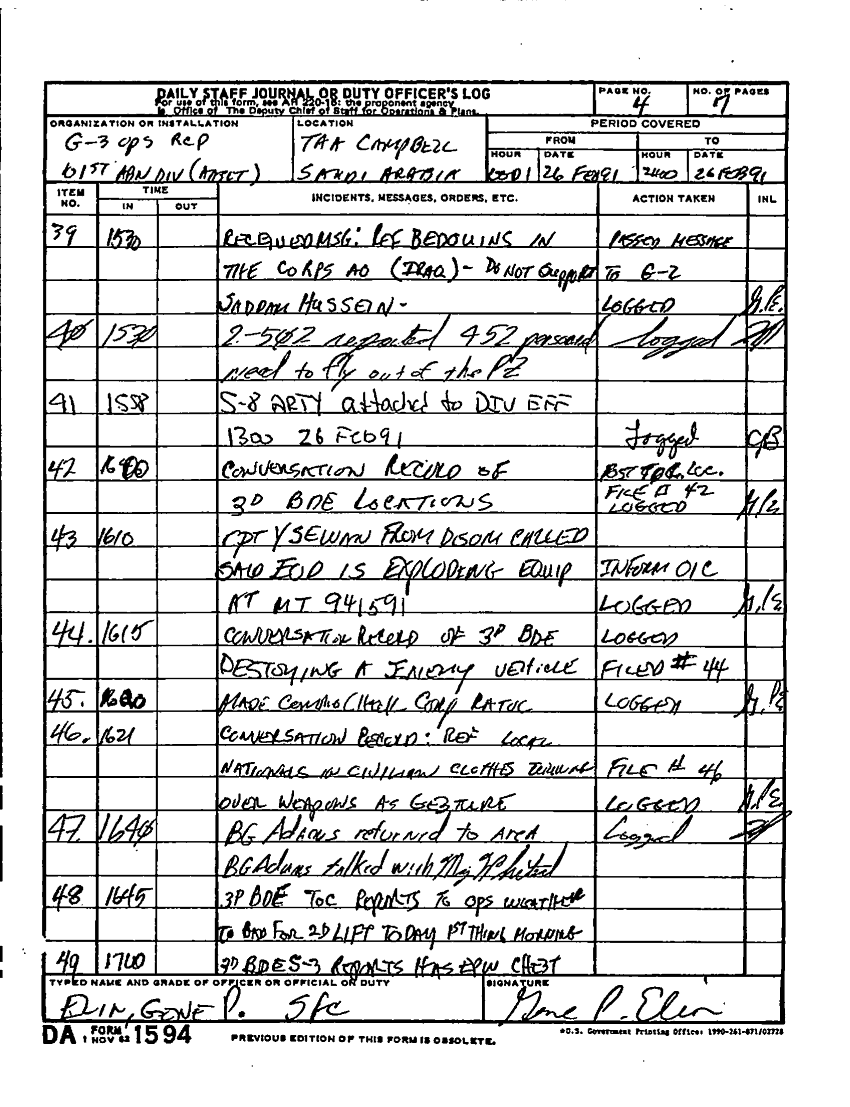 DAILY STAFF JOURNAL OR DUTY OFFICER'S LOG
For use of this form, see AR 220-15; the proponent agency
is Office of The Deputy Chief of Staff for Operations & Plans.
PAGE NO. 4
NO. OF PAGES 7
ORGANIZATION OR INSTALLATION
G-3 OPS REP
101ST ABN DIV (AASLT)
LOCATION
TAA CAMPBELL
SAUDI ARABIA
PERIOD COVERED
FROM TO
HOUR DATE HOUR DATE
0001 26 FEB 91 2400 26 FEB 91
ITEM NO. TIME IN OUT INCIDENTS, MESSAGES, ORDERS, ETC. ACTION TAKEN INL
39 1530 RECEIVED MSG: REF BEDOUINS IN PASSED MESSAGE
THE CORPS AO (IRAQ) - DO NOT SUPPORT TO G-2
SADDAM HUSSEIN - LOGGED G.P.E.
40 1530 2-502 reported 452 personnel logged
need to fly out of the PZ
41 1558 5-8 ARTY attached to DIV EFF
1300 26 FEB 91 Logged
42 1600 CONVERSATION RECORD OF
3D BDE LOCATIONS FILE # 42
LOGGED
43 1610 CPT FROM CALLED
SAID EOD IS EXPLODING EQUIP INFORM OIC
AT MT 941591 LOGGED
44. 1615 CONVERSATION RECORD OF 3D BDE LOGGED
DESTOYING A ENEMY VEHICLE FILED # 44
45. 1620 MADE COMMO CHECK CORP LOGGED G.P.E
46. 1621 CONVERSATION RECORD: REF LOCAL
NATIONALS IN CIVILIAN CLOTHES TURNING FILE # 46
OVER WEAPONS AS GEZTURE LOGGED G.P.E
47. 1640 BG Adams returned to AREA Logged
BG Adams talked with Maj
48 1645 3D BDE TOC REPORTS TO OPS WEATHER
TO BAD FOR 2D LIFT TODAY 1ST THING MORNING
49 1700 BDE S-3 REPORTS HAS EPW
TYPED NAME AND GRADE OF OFFICER OR OFFICIAL ON DUTY
ELIN, GENE P. SFC
SIGNATURE
Gene P. Elin
DA FORM 1 NOV 62 1594
PREVIOUS EDITION OF THIS FORM IS OBSOLETE.
*U.S. Government Printing Office: 1990-261-871/02728